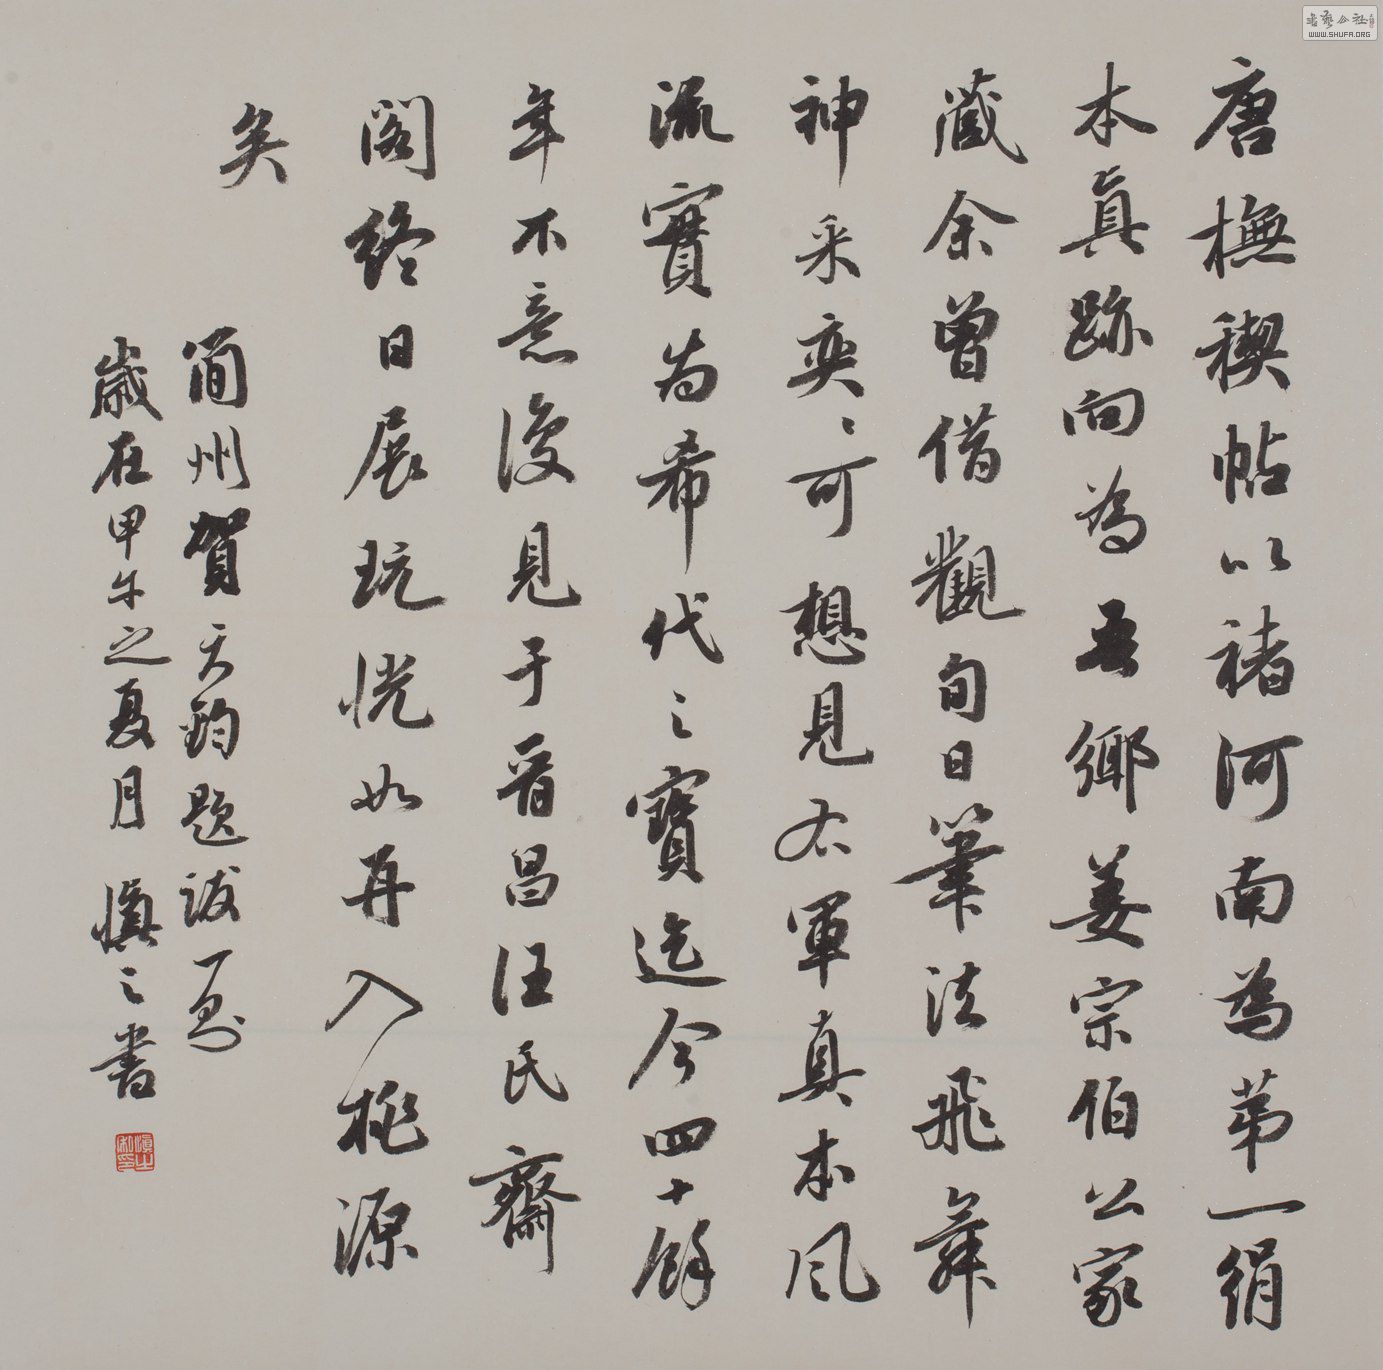 唐橅稧帖以褚河南為苐一絹
本真跡向為吾鄉姜宗伯公家
藏余曾借觀旬日筆法飛舞
神采奕〻可想見右軍真本風
流實为希代之寶迄今四十餘
年不意復見于晋昌汪氏齋
閣終日展玩恍如再入桃源
矣
蕳州賀天鈞題跋一則
歲在甲午之夏月 慎之書
書藝公社
WWW.SHUFA.ORG